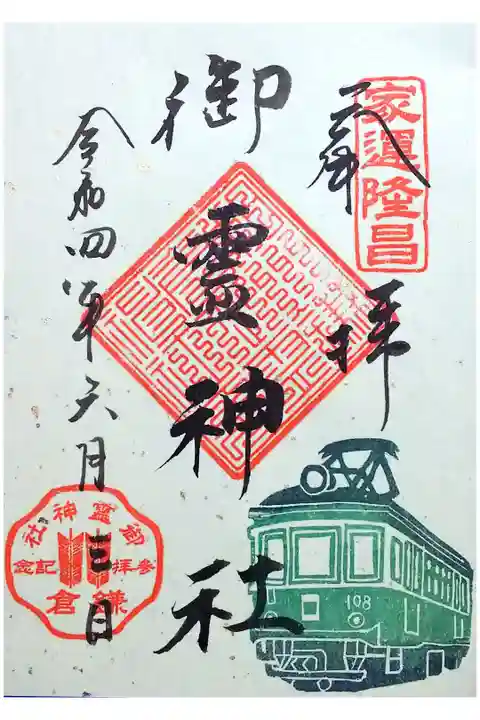 家運隆昌
奉拝
御霊神社
令和四年六月十三日
御靈神社
參拝記念
鎌倉
108